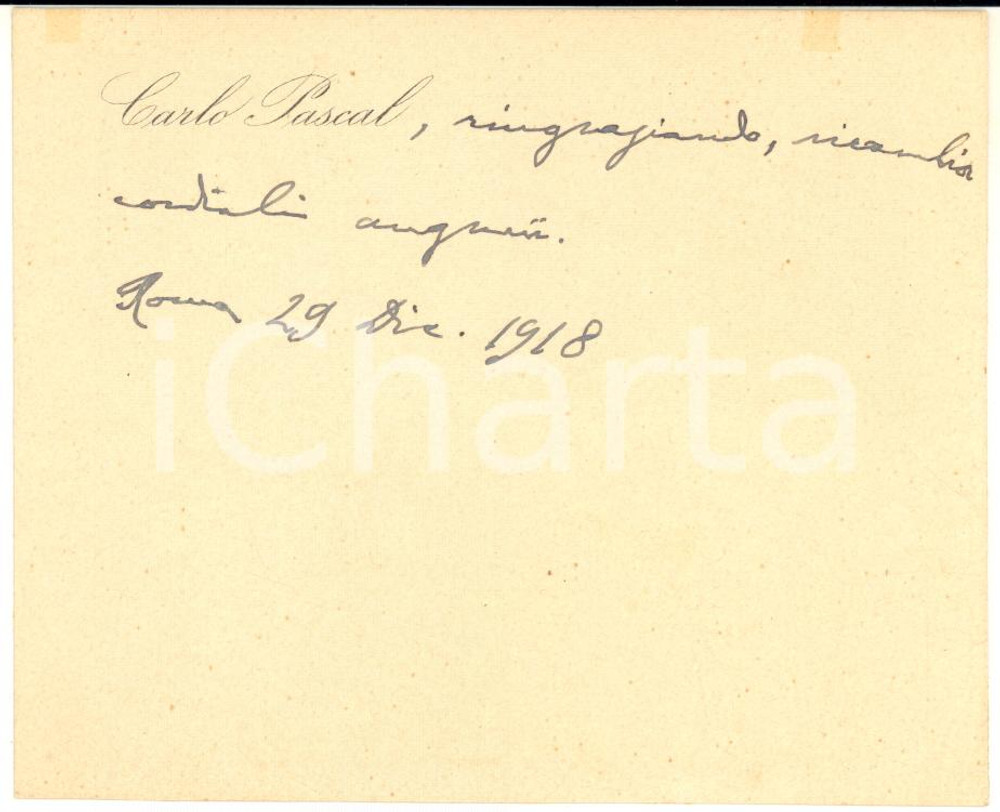 Carlo Pascal, ringraziando, ricambia
cordiali augurii.
Roma 29 Dic. 1918
iCharta